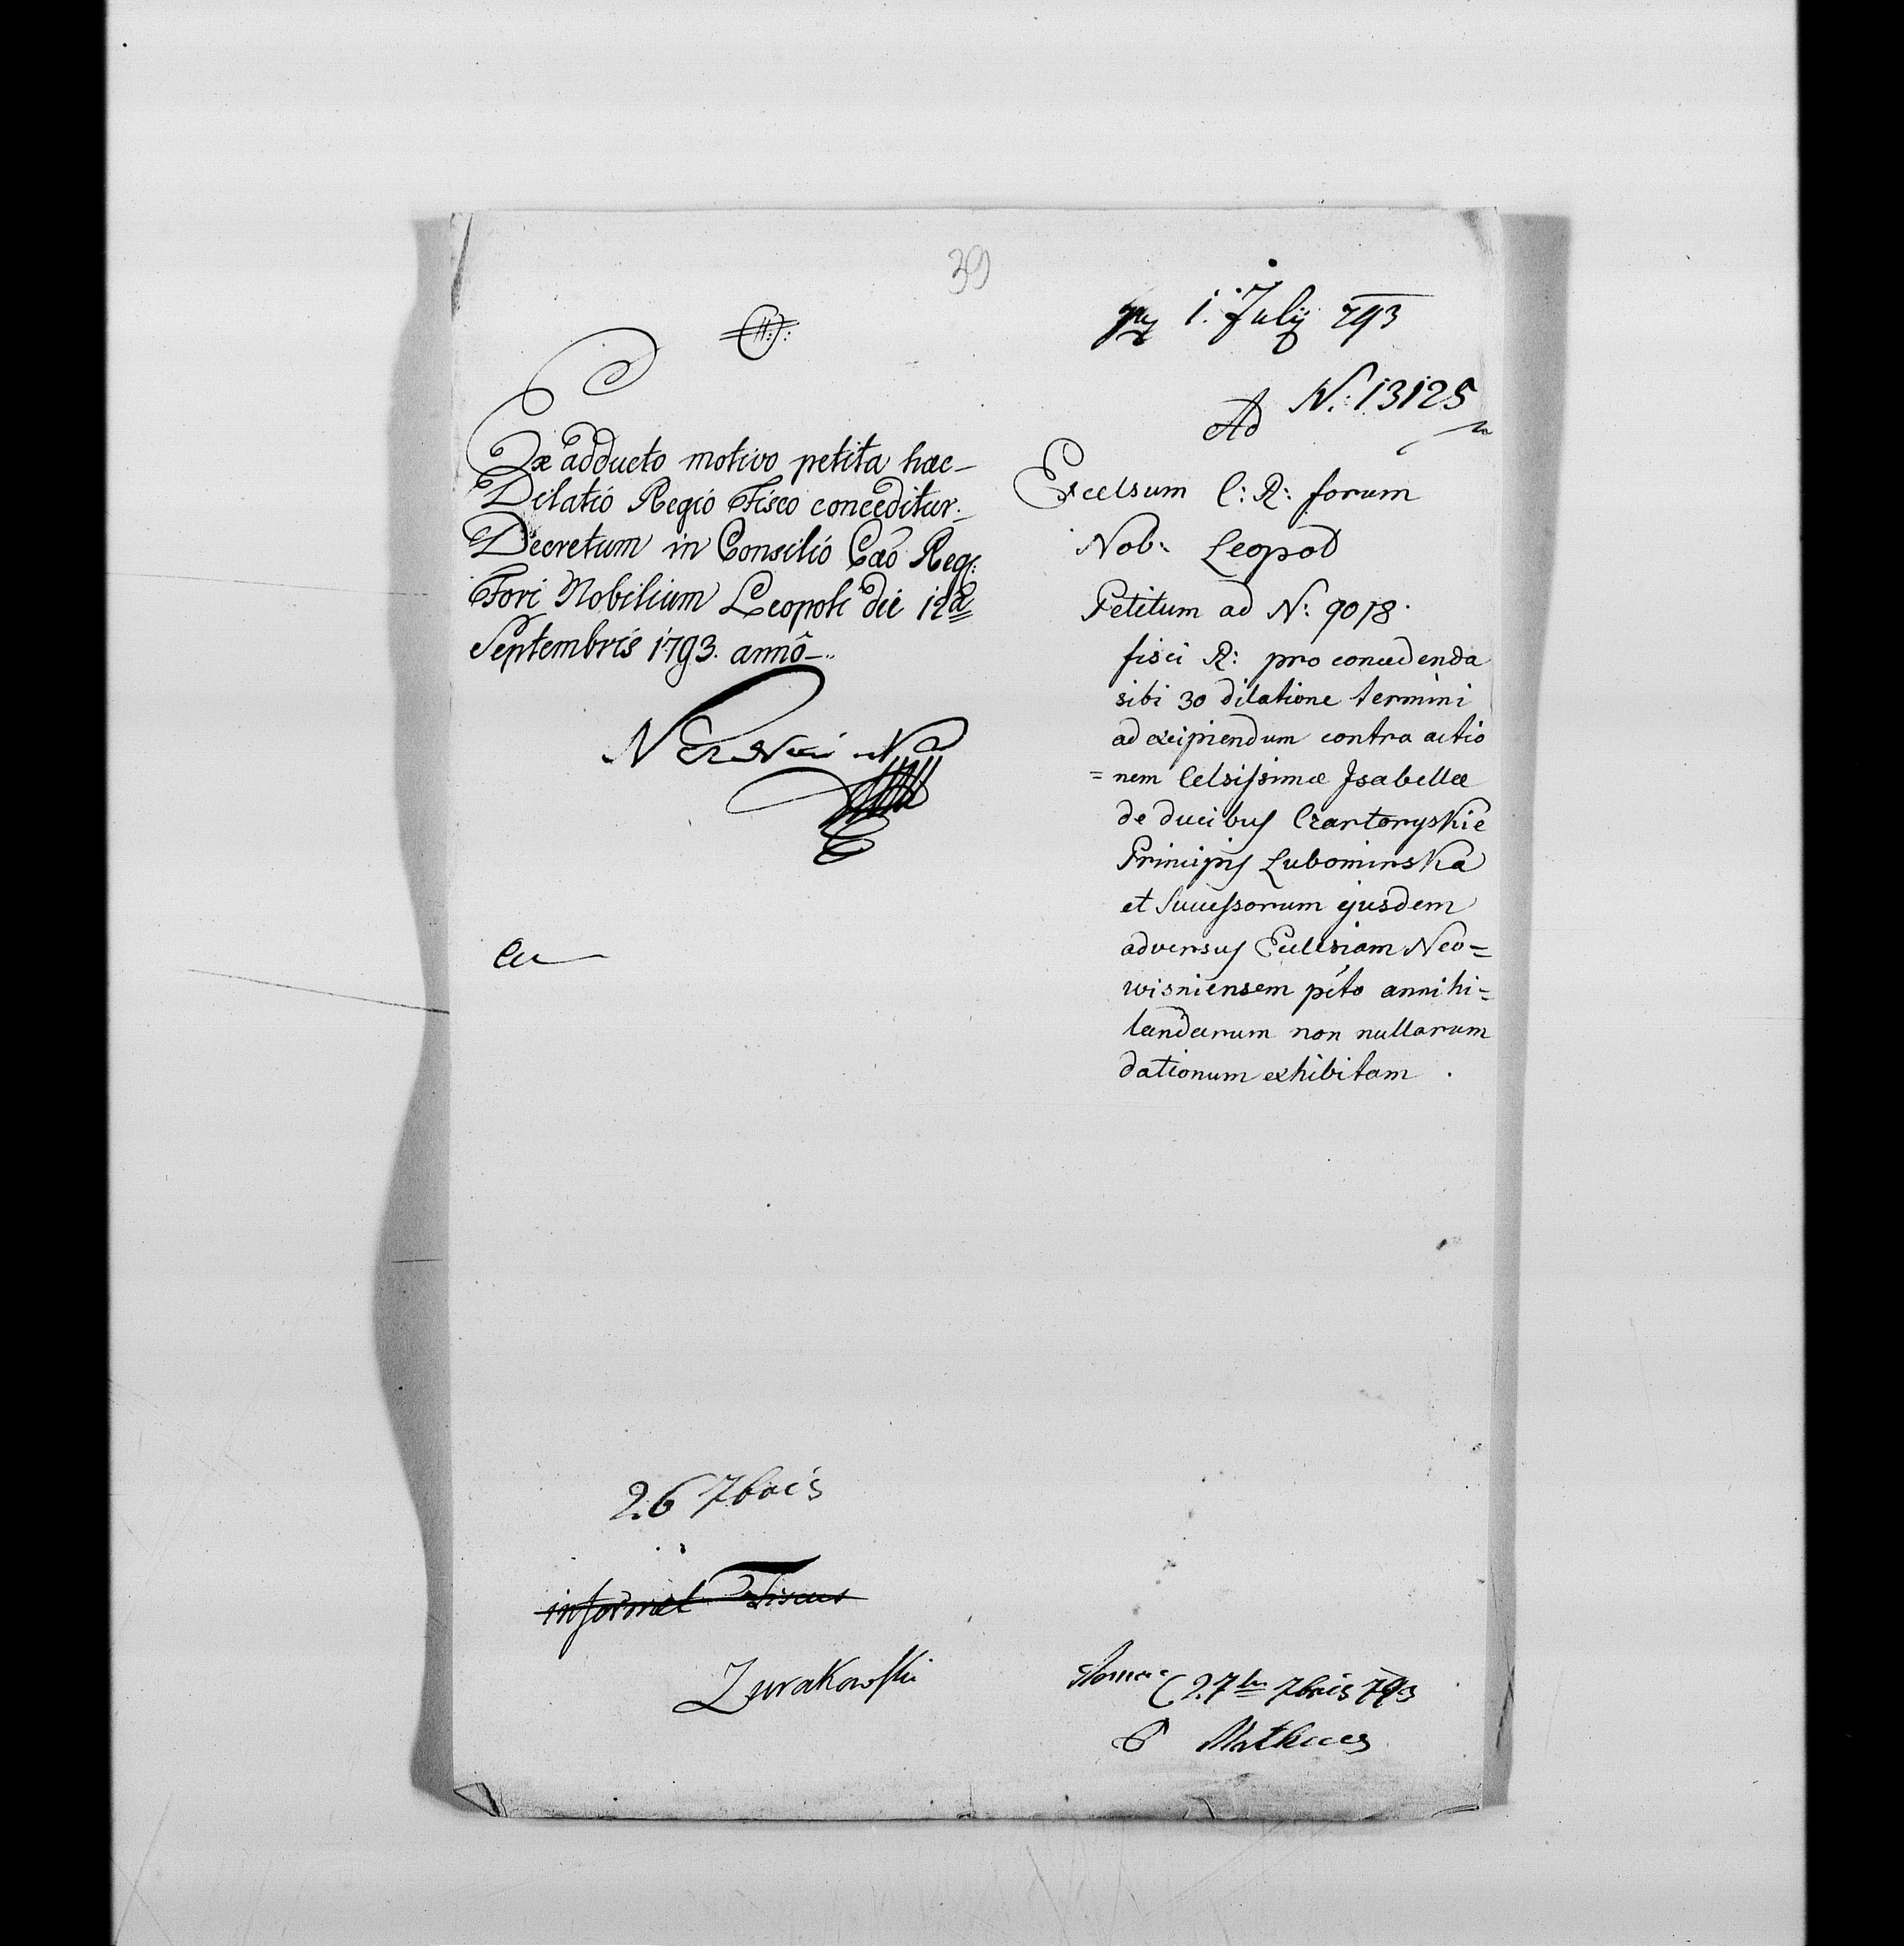 39
1. Julij 793
Ad N: 13125
Ex adducto motivo petita hac
Dilatio Regio Fisco conceditur.
Decretum in Consilió Cao Reg:
Fori Mobilium Leopoli die 12a
Septembris 1793. annô
Excelsum C: R: forum
Nob: Leopod
Petitum ad N: 9078.
fisci R: pro concedenda
sibi 30 dilatione termini
ad excipiendum contra actio
= nem Celsissimæ Isabellæ
de ducibus Czartoryskie
Principis Lubomirska
et Successorum ejusdem
adversus Ecclesiam Neo=
wisniensem pcto annihi=
landarum non nullarum
dationum exhibitam.
26 7bris
informet Fiscus
Zurakowski
27 7bris 793